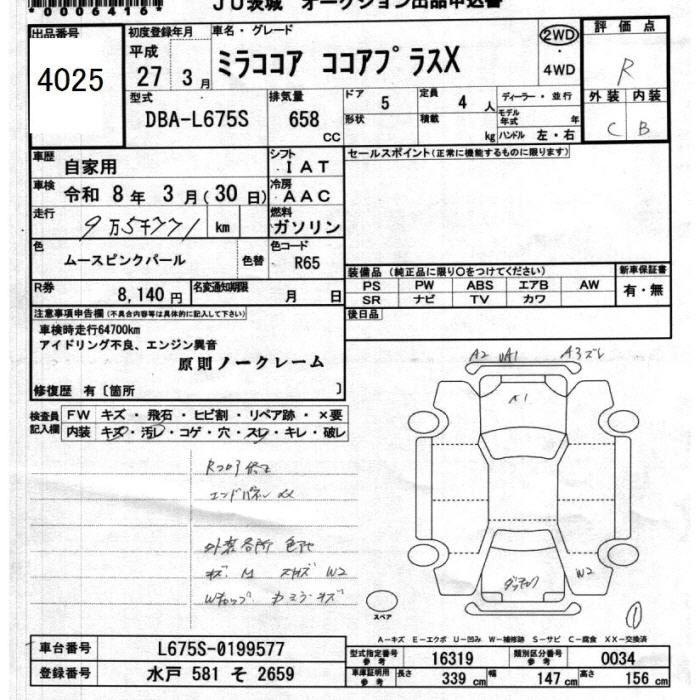 *0006416*
JU茨城 オークション出品申込書
出品番号
4025
初度登録年月
平成
27 3月
車名・グレード
ミラココア ココアプラスX
2WD
4WD
評価点
R
外装 内装
C B
型式
DBA-L675S
排気量
658
CC
ドア 5
形状
定員 4 人
積載 kg
ディーラー・並行
モデル年式 年
ハンドル 左・右
車歴
自家用
シフト
IAT
セールスポイント(正常に機能するものに限ります)
車検
令和 8年 3月(30日)
冷房
AAC
走行
9万54771 km
燃料
ガソリン
色
ムースピンクパール
色替
色コード
R65
装備品 (純正品に限り○をつけてください)
新車保証書
PS PW ABS エアB AW
SR ナビ TV カワ
有・無
R券
8,140円
名変通知期限
月 日
後日品
注意事項申告欄(不具合内容等は具体的に記入して下さい)
車検時走行64700km
アイドリング不良、エンジン異音
原則ノークレーム
修復歴 有〔箇所 〕
検査員記入欄
FW キズ・飛石・ヒビ割・リペア跡・×要
内装 キズ・汚レ・コゲ・穴・スレ・キレ・破レ
A2 UA1 A3ズレ
A1
エンドパネル XX
外装各所 色アセ
キズ M スリキズ W2
W2
スペア
①
A−キズ E−エクボ U−凹み W−補修跡 S−サビ C−腐食 XX−交換済
車台番号
L675S-0199577
型式指定番号
参考
16319
類別区分番号
参考
0034
登録番号
水戸 581 そ 2659
車庫証明用
参考
長さ 339 cm 幅 147 cm 高さ 156 cm